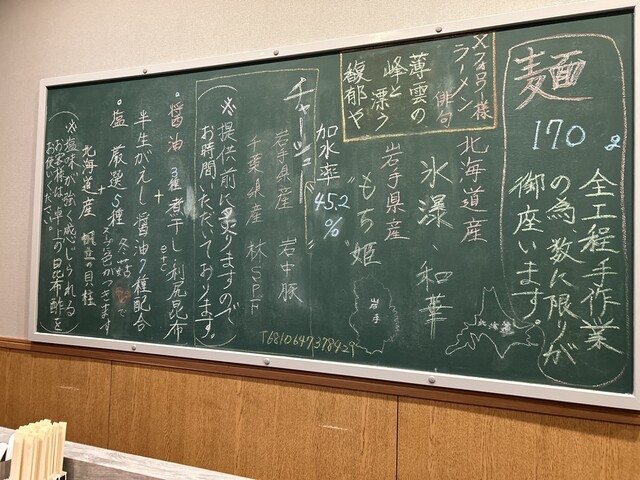 麺
170g
全工程手作業
の為、数に限りが
御座います。
Xフォロワー様
ラーメン俳句
薄雲の
峰と漂う
馥郁や
北海道産
氷瀑 和華
岩手県産
"もち姫"
北海道
岩手
加水率
45.2
%
チャーシュー
岩手県産 岩中豚
千葉県産 林SPF
(※提供前に炙りますので
お時間いただいております。)
・醤油 3種煮干し、利尻昆布
etc
+
半生がえし 醤油7種配合
・塩 厳選5種 冬菇で
+
北海道産 帆立の貝柱
(※塩味が強く感じられる
お客様は、卓上の昆布酢を
お使いください。)
T6810647378429